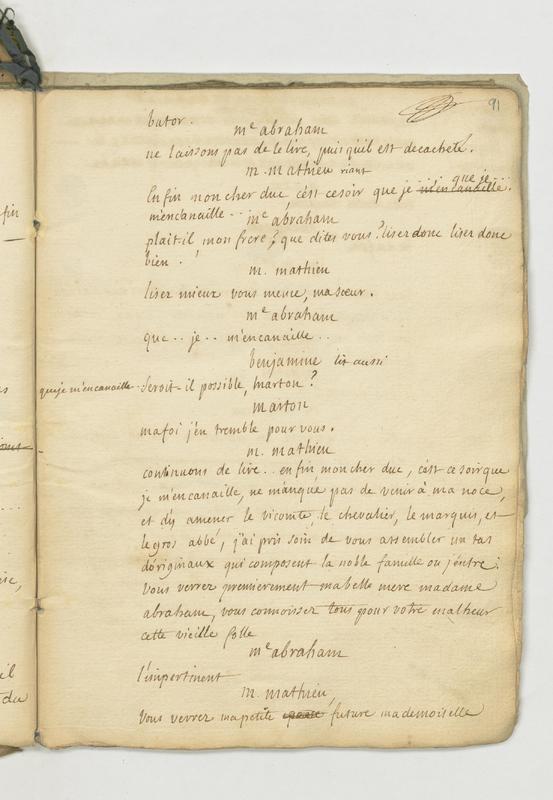 91
bator.
me abraham
ne laissons pas de le lire, puis qu'il est decacheté.
m. mathieu riant
Enfin mon cher duc, c'est ce soir que je m'encanaille. que je...
m'encanaille..
me abraham
plaît-il, mon frere? que dites vous? lisez donc lisez donc
bien.
m. mathieu
lisez mieux vous meme, ma sœur.
me abraham
que.. je.. m'encanaille..
benjamine lit aussi
que je m'encanaille.. seroit-il possible, marton?
marton
ma foi j'en tremble pour vous.
m. mathieu
continuons de lire.. enfin mon cher duc, c'est ce soir que
je m'encanaille, ne manque pas de venir à ma noce,
et d'y amener le vicomte, le chevalier, le marquis, et
le gros abbé, j'ai pris soin de vous assembler un tas
d'originaux qui composent la noble famille ou j'entre;
vous verrez premierement ma belle mere madame
abraham, vous connoissez tous pour votre malheur
cette vieille folle
me abraham
l'impertinent
m. mathieu,
vous verrez ma petite future mademoiselle